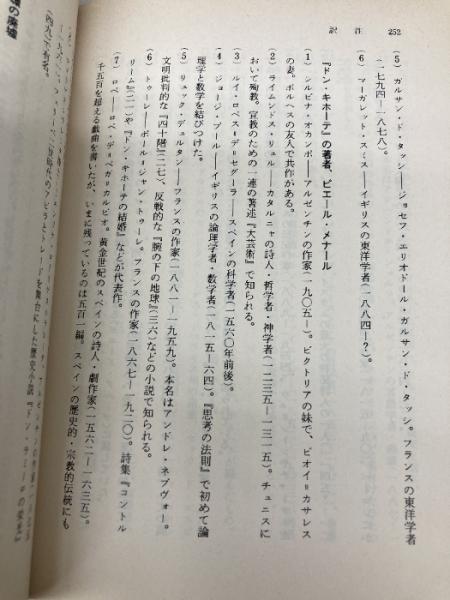 訳註 252
(5) ガルサン・ド・タッシー――ジョセフ・エリオドール・ガルサン・ド・タッシ。フランスの東洋学者
(一七九四―一八七八)。
(6) マーガレット・スミス――イギリスの東洋学者(一八八四―?)。
『ドン・キホーテ』の著者、ピエール・メナール
(1) シルビナ・オカンポ――アルゼンチンの作家(一九〇五―)。ビクトリアの妹で、ビオイ=カサレス
の妻。ボルヘスの友人で共作がある。
(2) ライムンドス・リュル――カタルニャの詩人・哲学者・神学者(一二三五―一三一五)。チュニスに
おいて殉教。宣教のための一連の著述『大芸術』で知られる。
(3) ルイ・ロペス=デ=セグーラ――スペインの科学者(一五六〇年前後)。
(4) ジョージ・ブール――イギリスの論理学者・数学者(一八一五―六四)。『思考の法則』で初めて論
理学と数学を結びつけた。
(5) リュック・デュルタン――フランスの作家(一八八一―一九五九)。本名はアンドレ・ネプヴォー。
文明批判的な『四十階』(二七)、反戦的な『腕の下の地球』(三六)などの小説で知られる。
(6) トゥーレ――ポール=ジャン・トゥーレ。フランスの作家(一八六七―一九二〇)。詩集『コントル
リーム』(二一)や『ドン・キホーテの結婚』などが代表作。
(7) ロペ――ロペ・デ=ベガ=カルピオ。黄金世紀のスペインの詩人・劇作家(一五六二―一六三五)。
千五百を超える戯曲を書いたが、いまに残っているのは五百一編。スペインの歴史的・宗教的伝統にも
の廃墟
を舞台にした歴史小説『ドン・ラミーロの栄光』
(四九)で有名。